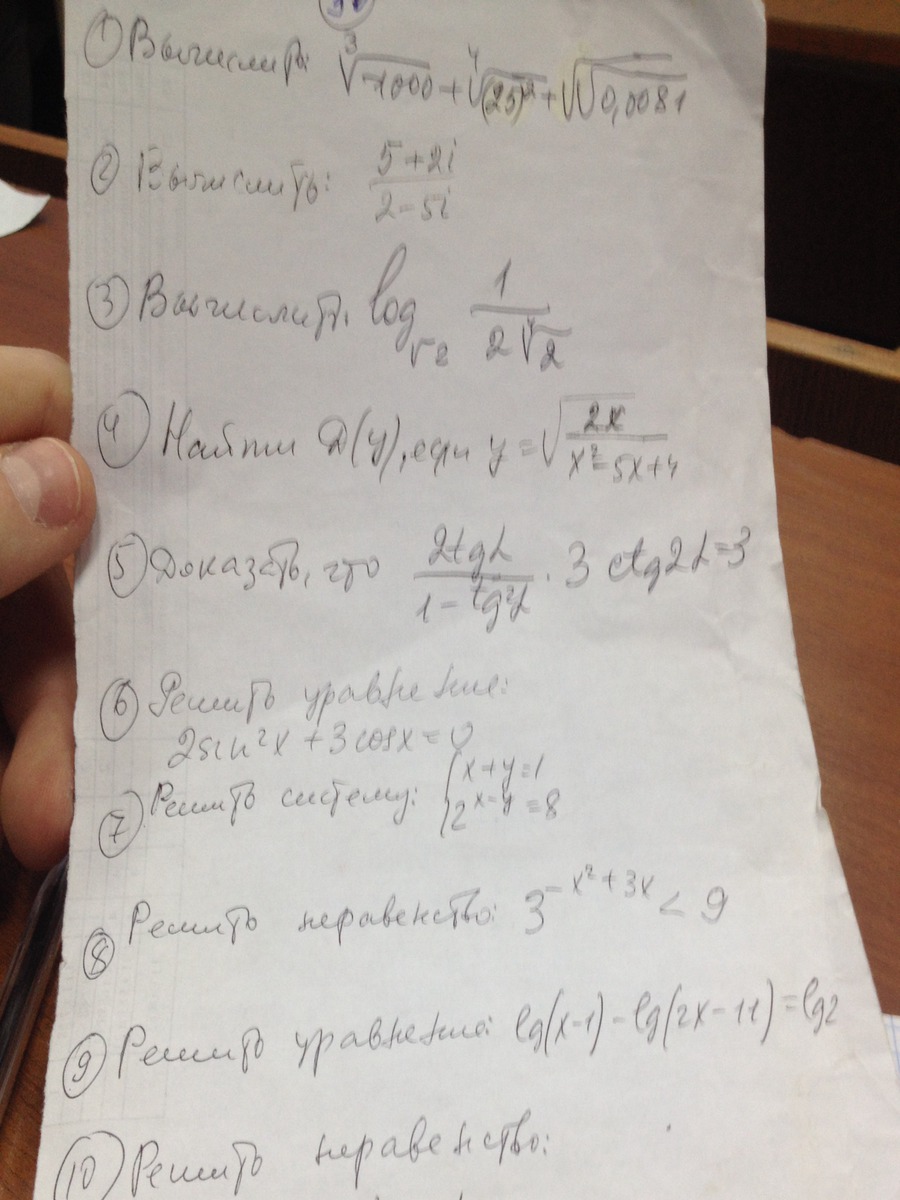 ① Вычислить: ∛(-1000) + ∜((25)²) + √√0,0081
② Вычислить: (5+2i)/(2-5i)
③ Вычислить: log_√2 1/(2∜2)
④ Найти D(y), если y = √(2x/(x²-5x+4))
⑤ Доказать, что (2tgα)/(1-tg²α) · 3 ctg2α=3
⑥ Решить уравнение:
2sin²x + 3cosx = 0
⑦ Решить систему: { x+y=1
2^(x-y) = 8
⑧ Решить неравенство: 3^(-x²+3x) < 9
⑨ Решить уравнение: lg(x-1) - lg(2x-11) = lg2
⑩ Решить неравенство: